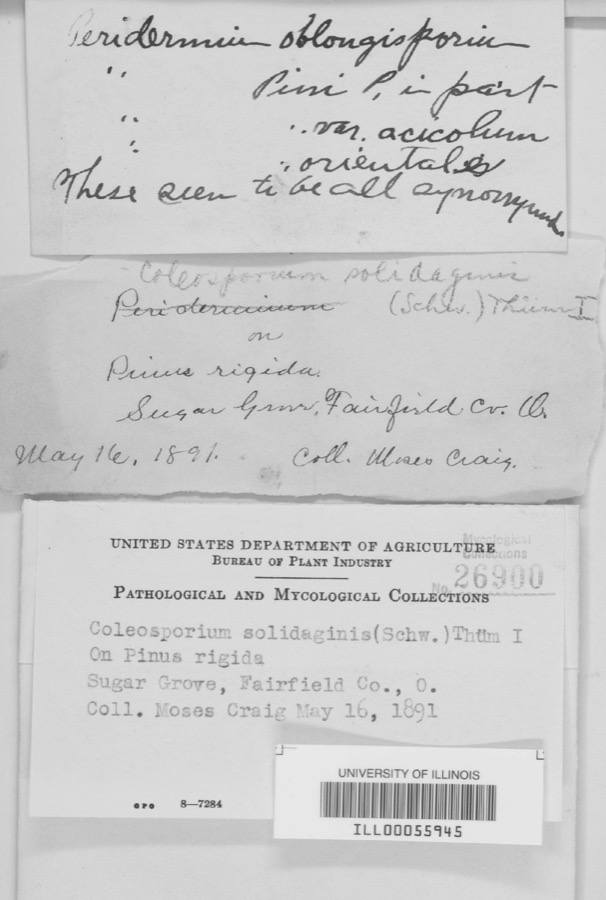 Peridermium oblongisporium
" Pini P, in part
" " var. acicolum
" " orientales
These seem to be all synonyms.
Coleosporium solidaginis
Peridermium (Schw.) Thüm I
on
Pinus rigida.
Sugar Grove, Fairfield Co. O.
May 16, 1891. Coll. Moses Craig.
UNITED STATES DEPARTMENT OF AGRICULTURE
BUREAU OF PLANT INDUSTRY
Mycological
Collections
No. 26900
PATHOLOGICAL AND MYCOLOGICAL COLLECTIONS
Coleosporium solidaginis(Schw.)Thüm I
On Pinus rigida
Sugar Grove, Fairfield Co., O.
Coll. Moses Craig May 16, 1891
GPO 8—7284
UNIVERSITY OF ILLINOIS
ILL00055945